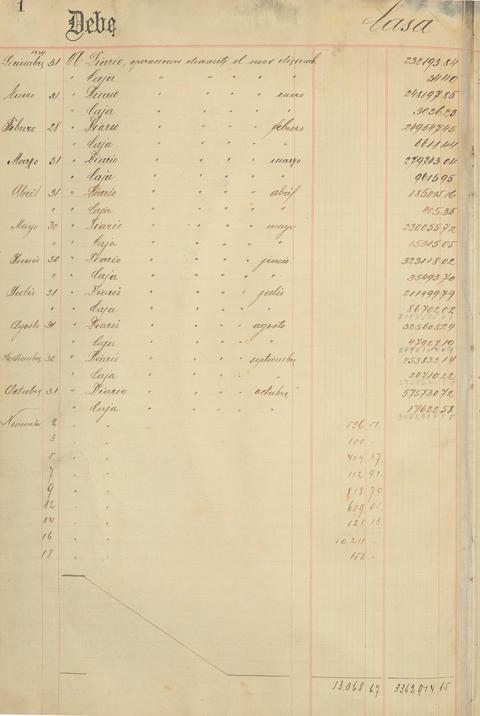 1
Debe Casa
Diciembre 31 A Diario, operaciones durante el mes diciemb. 232193 84
" " Caja " " " " " 3440
Enero 31 " Diario " " " " enero 248197 85
" " Caja " " " " " 3026 23
Febrero 28 " Diario " " " " febrero
" " Caja " " " " " 6611 44
Marzo 31 " Diario " " " " marzo
" " Caja " " " " " 9615 95
Abril 31 " Diario " " " " abril
" " Caja " " " " " 405 35
Mayo 30 " Diario " " " " mayo 230055 72
" " Caja " " " " " 1531 5 05
Junio 30 " Diario " " " " junio 323118 02
" " Caja " " " " " 35493 70
Julio 31 " Diario " " " " julio 211499 79
" " Caja " " " " " 8670 2 02
Agosto 31 " Diario " " " " agosto 325605 29
" " Caja " " " " " 47027 10
Septiembre 30 " Diario " " " " septiembre 253832 14
" " Caja " " " " " 24710 22
Octubre 31 " Diario " " " " octubre 575730 72
" " Caja " " " " " 17622 58
Noviembre 2 " " 536 51
3 " " 100 -
5 " " 409 37
7 " " 112 91
9 " " 818 70
12 " " 609 05
14 " " 121 18
16 " " 10,211 -
18 " " 150 -
13,068 67 3362014 15